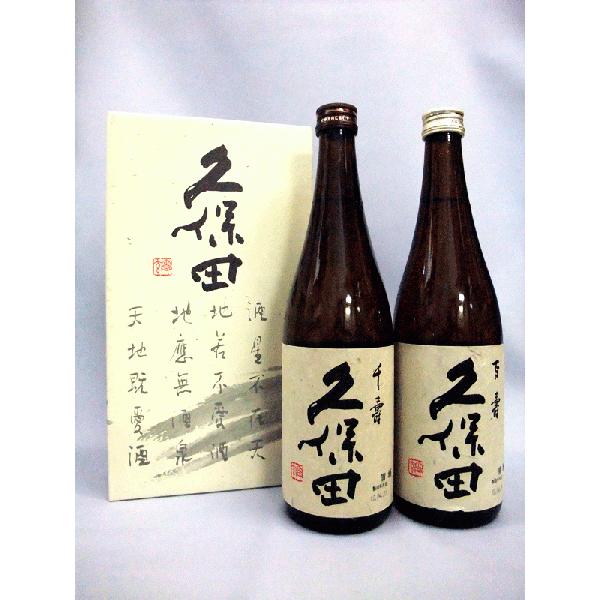 久保田
酒星不在天
地若不愛酒
地應無酒泉
天地既愛酒
千壽
久保田
百壽
久保田